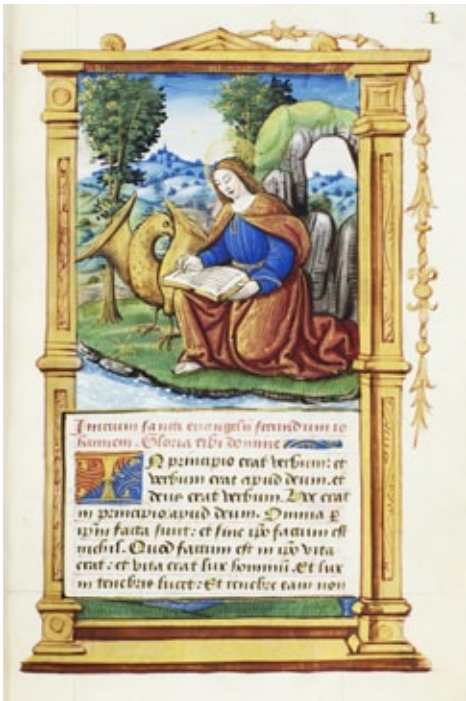 1
Inicium sancti evangelii secundum io
hannem. Gloria tibi domine
IN principio erat verbum: et
verbum erat apud deum. et
deus erat verbum. Hoc erat
in principio apud deum. Omnia p
ipm facta sunt: et sine ipo factum est
nichil. Quod factum est in ipo vita
erat: et vita erat lux hominu. Et lux
in tenebris lucet: Et tenebre eam non